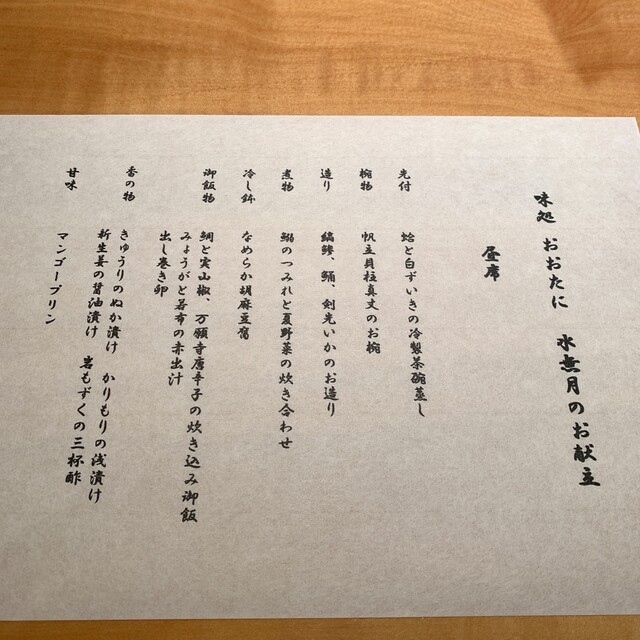 味処 おおたに 水無月のお献立
昼席
先付 蛤と白ずいきの冷製茶碗蒸し
椀物 帆立貝柱真丈のお椀
造り 縞鯵、鮪、剣光いかのお造り
煮物 鰯のつみれと夏野菜の炊き合わせ
冷し鉢 なめらか胡麻豆腐
御飯物 鯛と実山椒、万願寺唐辛子の炊き込み御飯
みょうがと若布の赤出汁
出し巻き卵
香の物 きゅうりのぬか漬け かりもりの浅漬け
新生姜の醤油漬け 岩もずくの三杯酢
甘味 マンゴープリン